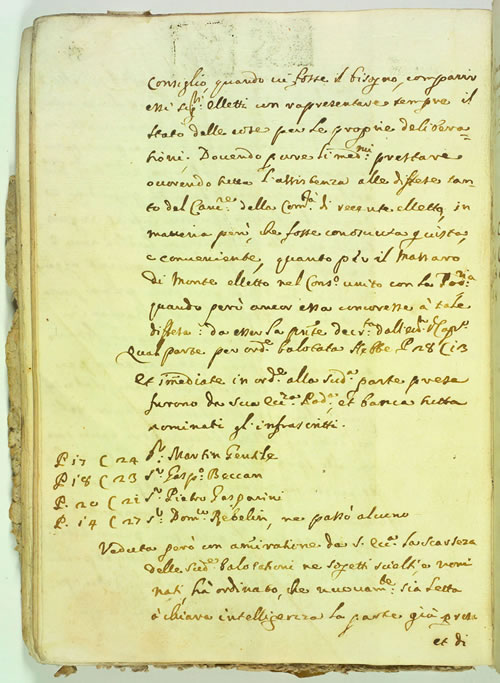 Consiglio, quando vi fosse il bisogno, comparir
essi Sig.ri elletti con rapresentare sempre il
stato delle cose per le proprie delibera=
tioni. Dovendo pure li med.mi prestare
ocorendo tutta l'assistenza alle diffese tan=
to del Canc.re della Com.tà di recente elletto, in
materia però, che fosse conosciuta giusta,
e conveniente, quanto p. il Massaro
di Monte elletto nel Cons.o unito con la
quando però ancor essa concoresse à tale
diffesa: da esser la pnte
Qual parte per ord.e balotata hebbe P. 28 C 13
Et immediate in ord.e alla sud.a parte presa
furono da sua ecc.a Pod.a, et banca tutta
nominati gl'infrascritti.
P. 17 C 24 S.r Martin Gentile
P. 18 C 23 S.r Gasp.o Beccari
P. 20 C 21 S.r Pietro Gasparini
P. 14 C 27 S.r Dom.co Rebelin, ne passò alcuno
Veduta però con amiratione da S. ecc.a la scarseza
delle sud.e balotationi ne sogetti scielti e nomi
nati, hà ordinato, che nuovam.te sia letta
à chiara intelligenza la parte già presa
et di